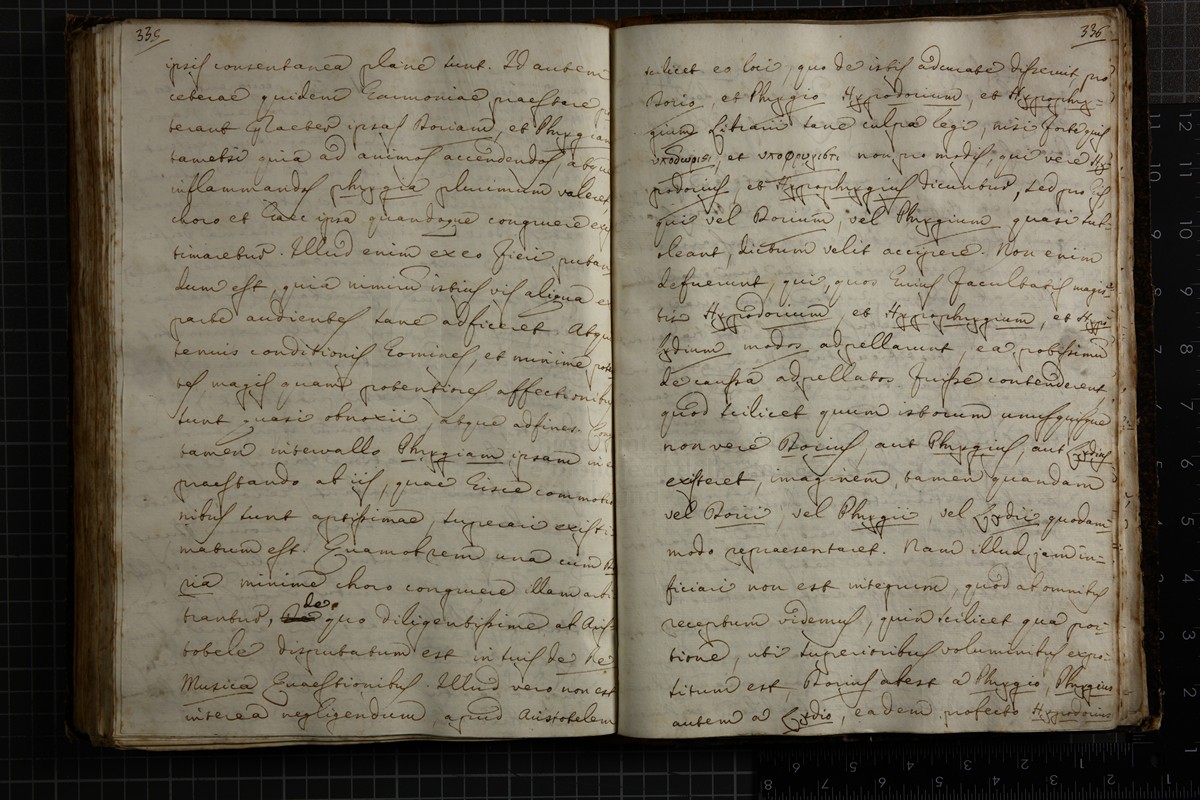 335
ipsis consentanea plane sunt. Id autem
ceterae quidem Harmoniae praestare po
terant praeter ipsas Doriam, et Phrygiam
tametsi quia ad animos accendendos, atque
inflammandos phrygia plurimum valeret,
choro et haec ipsa quandoque congruere exis
timaretur. Illud enim ex eo fieri putan
dum est, quia nimirum istius vis aliqua ex
parte audientes sane adficeret. Atqu
tenuis conditionis homines, et minime poten
tes magis quam potentiores affectionibus
sunt quasi obnoxii, atque adfines.
tamen intervallo Phrygiam ipsam in
praestando ab iis, quae hisce commotio
nibus sunt aptissimae, superari existi
matum est. Quamobrem una cum Do
ria minime choro congruere illam arbi
trantur, de quo diligentissime ab Aris
totele disputatum est in suis de Re
Musica Quaestionibus. Illud vero non est
interea negligendum, apud Aristotelem
336
scilicet eo loci, quo de istis adcurate disseruit, pro
Dorio, et Phrygio Hypodorium, et Hypophry-
gium Librarii sane culpa legi, nisi forte quis
υποδωριστι, et υποφρυγιστι non pro modis, qui vere Hy
podorius, et Hypophrygius dicuntur, sed pro iis,
qui vel Dorium, vel Phrygium quasi sub-
oleant, dictum velit accipere. Non enim
defuerunt, qui, quos huius facultatis magis-
tri Hypodorium, et Hypophrygium, et Hypo
lydium modos adpellarunt, ea potissimum
de caussa adpellatos fuisse contenderent
quod scilicet quum istorum unusquisque
non vere Dorius, aut Phrygius, aut Lydius
existeret, imaginem tamen quandam
vel Dorii, vel Phrygii, vel Lydii quodam
modo repraesentaret. Nam illud jam in-
ficiari non est integrum, quod ab omnibus
receptum videmus, quin scilicet qua por-
tione, uti superioribus voluminibus expo-
situm est, Dorius abest a Phrygio, Phrygius
autem a Lydio, eadem profecto Hypodorius